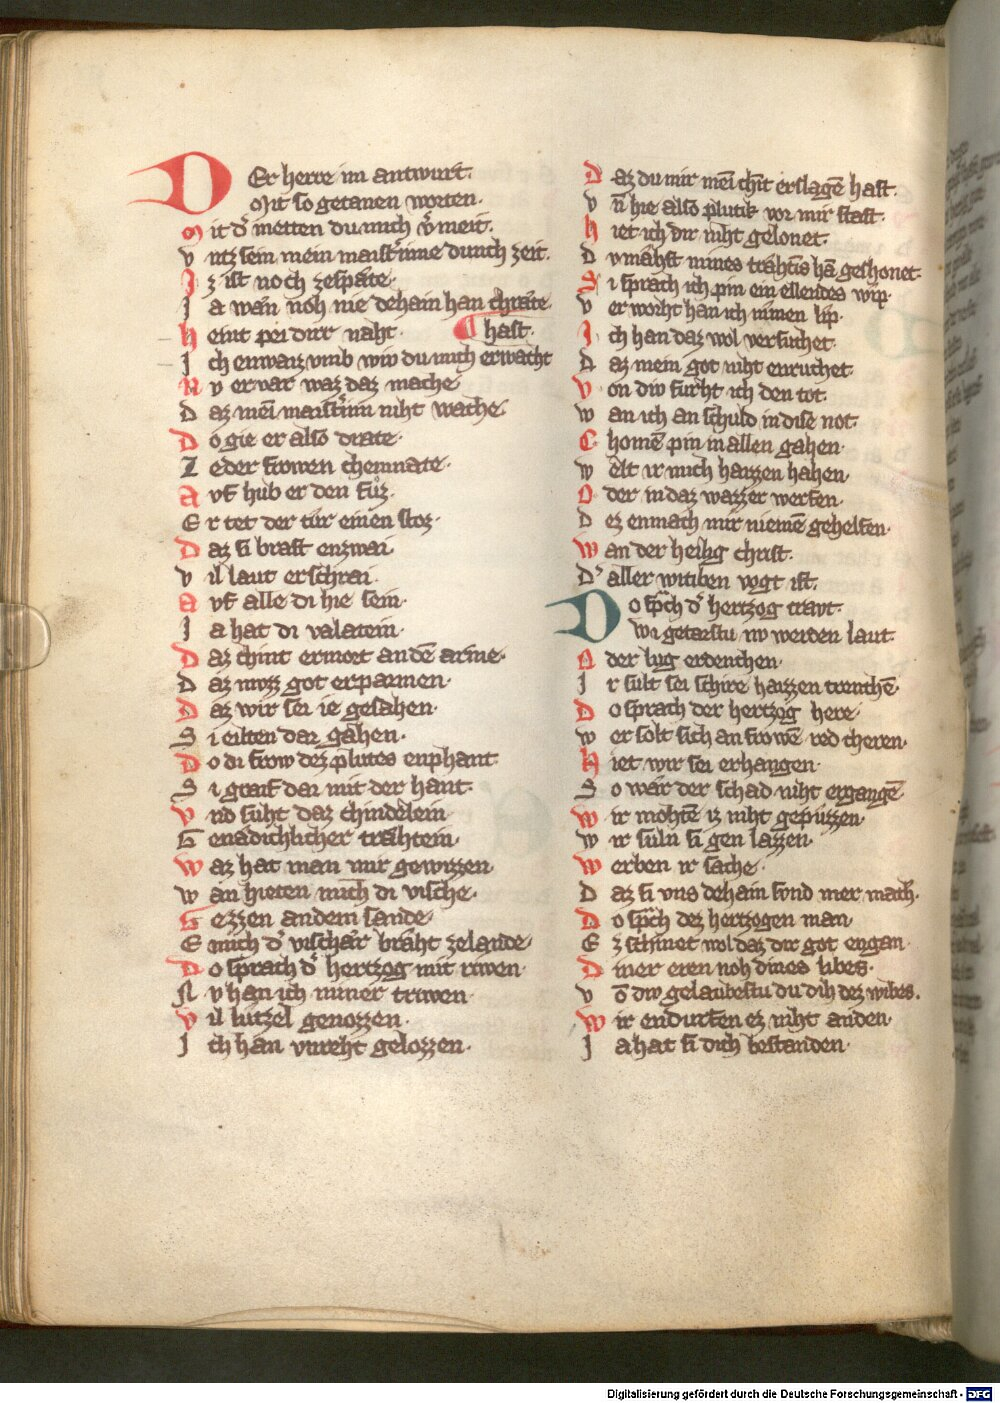 DEr herre im antwurt·
Mit so getanen worten·
Mit d͛ metten du mich v͛meit·
Vntz sein mein maist͛inne dunch zeit·
Iz ist noch zespate·
Ia wan noh nie dehain han chrate·
Heint pei dirr naht· hast·
Ich enwaiz vmb wiv du mich erwacht
Nv ervar waz daz mache
Daz mei maist͛inn niht wache·
Do gie er also drate·
Zeder frowen chemnate·
Avf hub er den fuͦz·
Er tet der tur einen stoz·
Daz si brast enzwai·
Vil laut erschrai·
Avf alle di hie sein·
Ia hat di valatein·
Daz chint ermort an dē arme·
Daz muzz got erparmen·
Daz wir sei ie gesahen·
Si eilten dar gahen·
Do di frow dez plutes enphant·
Si graif dar mit der hant·
Vnd suht daz chindelein·
Genadichlicher trahtein·
Waz hat man mir gewizzen·
Wan hieten mich di vische·
Gezzen an dem sande·
E mich d͛ vischar braht zelande·
Do sprach d͛ hertzog mit riwen·
Nv han ich miner triwen·
Vil lutzel genozzen·
Ich han vnreht gelozzen·
Daz du mir mei chīt erslagē hast·
Vn̄ hie also plutik vor mir stast·
Hiet ich dir niht gelonet·
Dv mahst mines trahtīs hā geshonet·
Si sprach ich pin ein ellendes wip·
Verworht han ich minen lip·
Ich han daz wol versuchet·
Daz mein got niht enruchet·
Von div furht ich den tot·
Wan ich an schuld in dise not·
Chomē pin in allen gahen·
Welt ir mich haizzen hahen·
Oder in daz wazzer werfen·
Dez enmach mir niemē gehelfen·
Wan der heilig christ·
D͛ aller witiben vogt ist·
Do sp͛ch d͛ hertzog travt·
Wi getarstu nv werden laut·
Oder lug erdenchen·
Ir sult sei schire haizzen trenchē·
Do sprach der hertzog here·
Wer solt sich an frowē red cheren·
Hiet wir sei erhangen·
So war der schad niht ergangē
Wir mohtē iz niht gepuzzen·
Wir suln si gen lazzen·
Werben ir sache·
Daz si vns dehain svnd mer mach·
Do sp͛ch dez hertzogen man·
Ez schinet wol daz dir got engan·
Diner eren noh dines libes·
Vō div gelaubestu du dih dez wibes·
Wir endurfen ez niht anden·
Ia hat si dich bestanden·
Digitalisierung gefördert durch die Deutsche Forschungsgemeinschaft - DFG